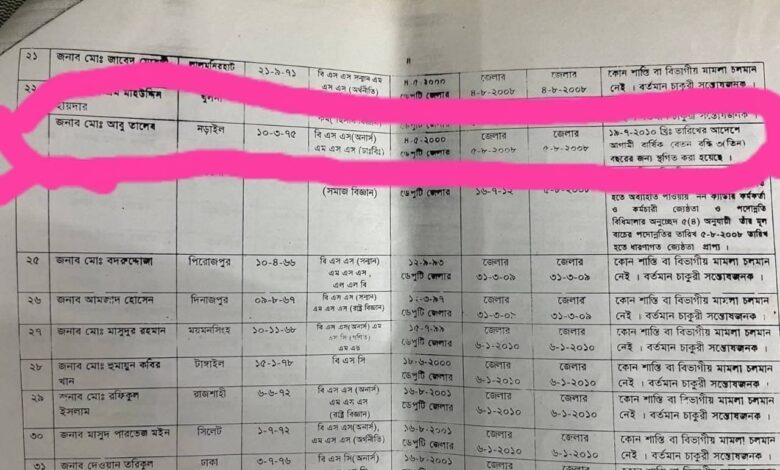 ২১ জনাব মোঃ জাবেদ লালমনিরহাট ২১-৯-৭১ বি এস এস সম্মান এম এস এস (অর্থনীতি) ৪-৫-২০০০ ডেপুটি জেলার জেলার ৪-৮-২০০৮ জেলার ৪-৮-২০০৮ কোন শাস্তি বা বিভাগীয় মামলা চলমান নেই । বর্তমান চাকুরী সন্তোষজনক ।
২২ মাহউদ্দিন হায়দার খুলনা
জনাব মোঃ আবু তালেব নড়াইল ১০-৩-৭৫ বি এস এস(অনার্স) এম এস এস ৪-৫-২০০০ ডেপুটি জেলার জেলার ৫-৮-২০০৮ জেলার ৫-৮-২০০৮ ১৯-৭-২০১০ খ্রিঃ তারিখের আদেশে
আগামী বার্ষিক বেতন বৃদ্ধি ৩(তিন)
বছরের জন্য স্থগিত করা হয়েছে ।
(সমাজ বিজ্ঞান) ডেপুটি জেলার ১৬-৭-১২ ৫-৮-২০০৮
হতে অব্যাহতি পাওয়ায় নন ক্যাডার কর্মকর্তা
ও কর্মচারী জ্যেষ্ঠতা ও পদোন্নতি
বিধিমালার অনুচ্ছেদ ৫(৪) অনুযায়ী তাঁর মূল
ব্যাচের পদোন্নতির তারিখ ৫-৮-২০০৮ তারিখ
হতে ধারণাগত জ্যেষ্ঠতা প্রাপ্য ।
২৫ জনাব মোঃ বদরুদ্দোজা পিরোজপুর ১০-৪-৬৬ বি এস এস (সম্মান) এম এস এস, এল এল বি ১২-৯-৯৩ ডেপুটি জেলার জেলার ৩১-৩-০৯ জেলার ৩১-৩-০৯ কোন শাস্তি বা বিভাগীয় মামলা চলমান নেই । বর্তমান চাকুরী সন্তোষজনক ।
২৬ জনাব আমজাদ হোসেন দিনাজপুর ০৯-৮-৬৭ বি এস এস (সম্মান) এম এস এস (রাষ্ট্র বিজ্ঞান) ডেপুটি জেলার জেলার ৩১-৩-০৯ জেলার ৩১-৩-০৯ কোন শাস্তি বা বিভাগীয় মামলা চলমান নেই । বর্তমান চাকুরী সন্তোষজনক ।
২৭ জনাব মোঃ মাসুদুর রহমান ময়মনসিংহ ১০-১১-৬৮ বি এস এস(অনার্স) এম এড ১৫-৭-৯৯ ডেপুটি জেলার জেলার ৬-১-২০১০ জেলার ৬-১-২০১০ কোন শাস্তি বা বিভাগীয় মামলা চলমান নেই । বর্তমান চাকুরী সন্তোষজনক ।
২৮ জনাব মোঃ হুমায়ুন কবির খান টাঙ্গাইল ১৫-১-৭৮ বি এস সি ১৮-৬-২০০০ ডেপুটি জেলার জেলার ৬-১-২০১০ জেলার ৬-১-২০১০ কোন শাস্তি বা বিভাগীয় মামলা চলমান নেই । বর্তমান চাকুরী সন্তোষজনক ।
২৯ জনাব মোঃ রফিকুল ইসলাম রাজশাহী ৬-৬-৭২ বি এস এস (অনার্স) এম এস এস (রাষ্ট্র বিজ্ঞান) ১৬-৮-২০০১ ডেপুটি জেলার জেলার ৬-১-২০১০ জেলার ৬-১-২০১০ কোন শাস্তি বা বিভাগীয় মামলা চলমান নেই । বর্তমান চাকুরী সন্তোষজনক ।
৩০ জনাব মাসুদ পারভেজ মঈন সিলেট ১-৭-৭২ বি এস এস(অনার্স), এম এস এস(অর্থনীতি) ১৬-৮-২০০১ ডেপুটি জেলার জেলার ৬-১-২০১০ জেলার ৬-১-২০১০ কোন শাস্তি বা বিভাগীয় মামলা চলমান নেই । বর্তমান চাকুরী সন্তোষজনক ।
৩১ জনাব দেওয়ান তরিকুল ঢাকা ৩-৭-৭৬ বি এস সি(অনার্স) ১৬-৮-২০০১ জেলার জেলার কোন শাস্তি বা বিভাগীয় মামলা চলমান